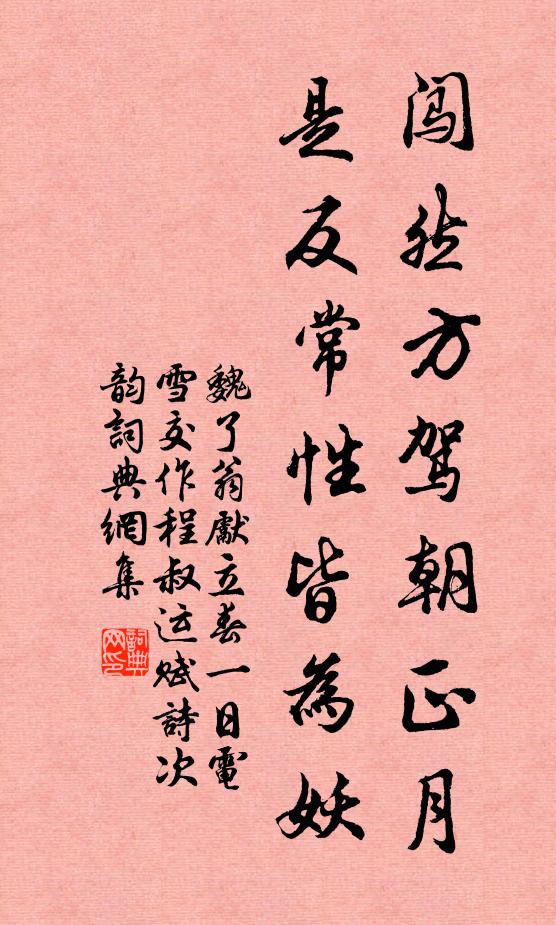 闯然方驾朝正月
是反常性皆為妖
魏了翁獻立春一日電
雪交作程叔运赋詩次
韵詞典網集
詞典网印